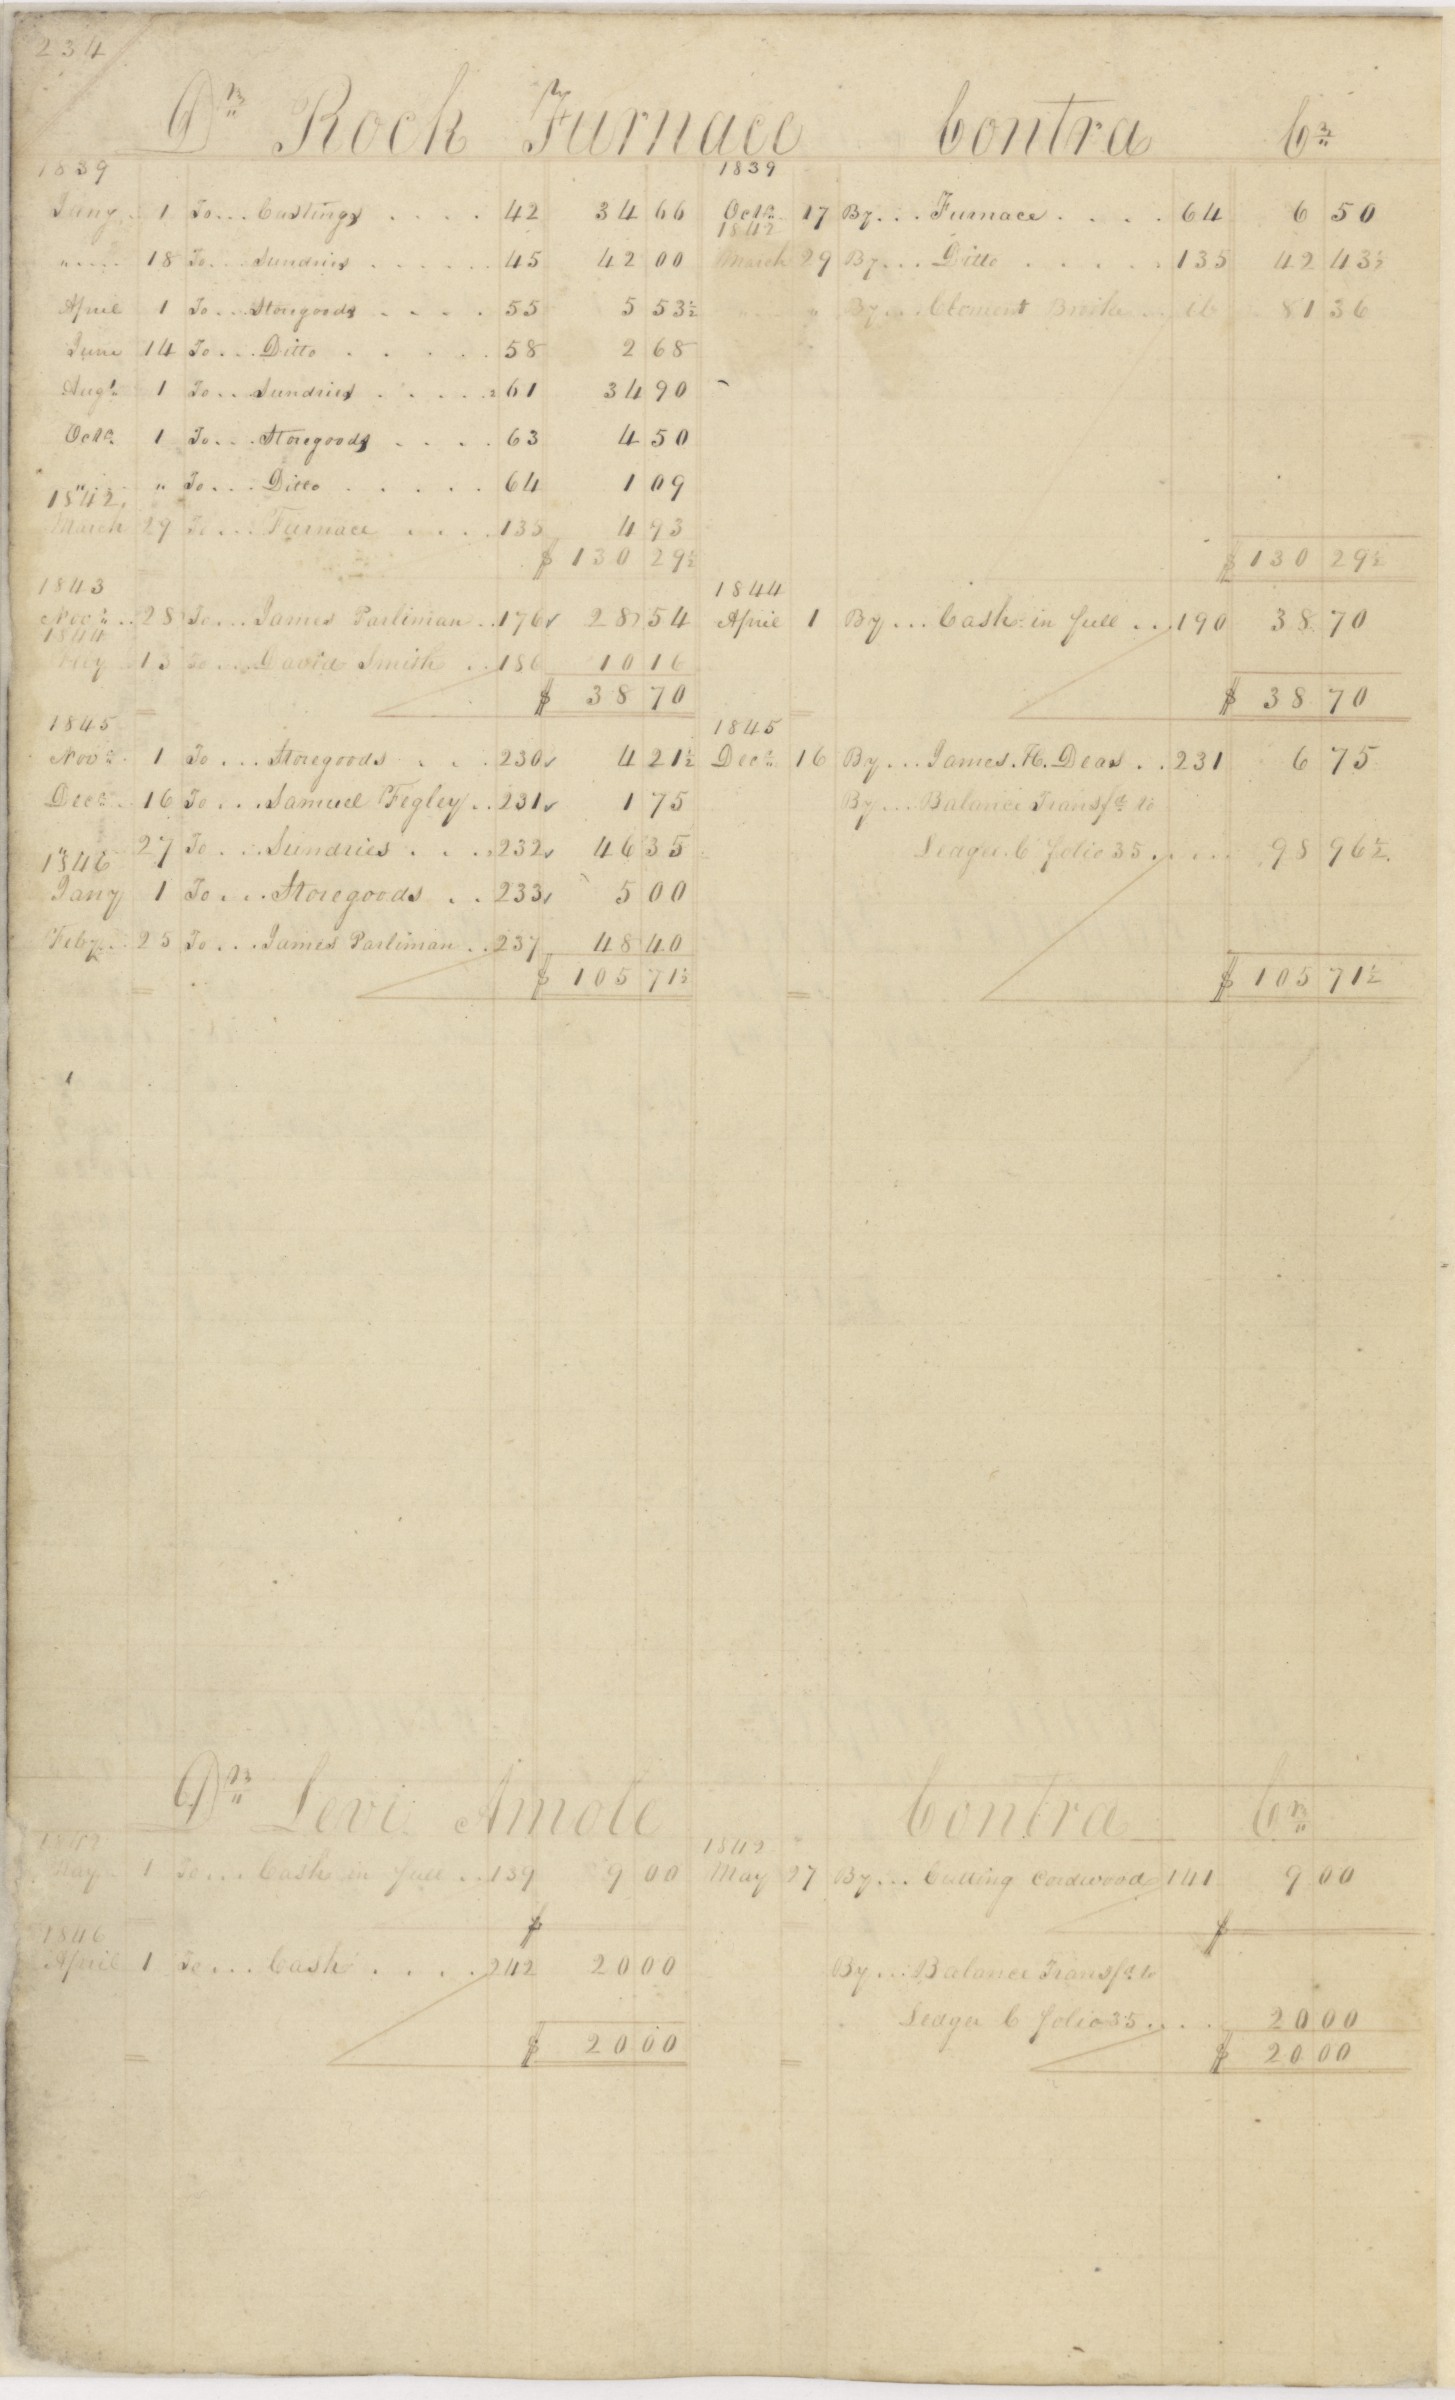 234
Dr Rock Furnace Contra Cr
1839 1839
Jany 1 To... Castings .... 42 34 66 Octr 17 By... Furnace .... 64 6 50
1842
" .... 18 To... Sundries ...... 45 42 00 March 29 By... Ditto ..... 135 42 43½
April 1 To... Storegoods .... 55 5 53½ " " By... Clement Brooke .. ib 81 36
June 14 To... Ditto ...... 58 2 68
Augt 1 To... Sundries ..... 61 34 90
Octr 1 To... Storegoods .... 63 4 50
" " To... Ditto ..... 64 1 09
1842
March 29 To... Furnace .... 135 4 93
$ 130 29½ $ 130 29½
1843 1844
Novr .. 28 To... James Parliman .. 176 28 54 April 1 By... Cash in full ... 190 38 70
1844
13 To... David Smith .. 186 10 16
$ 38 70 $ 38 70
1845 1845
Novr 1 To... Storegoods ... 230 4 21½ Decr 16 By... James. H. Deas .. 231 6 75
Decr 16 To... Samuel Fegley .. 231 1 75 By... Balance Transfd to
" 27 To... Sundries .... 232 46 35 Ledger C folio 35 ..... 98 96½
1846
Jany 1 To... Storegoods .. 233 5 00
Feby 25 To... James Parliman .. 237 48 40
$ 105 71½ $ 105 71½
Dr Levi Amole Contra Cr
1842 1842
May 1 To... Cash in full .. 139 9 00 May 27 By... Cutting Cordwood 141 9 00
$ $
1846
April 1 To... Cash .... 242 20 00 By... Balance Transfd to
Ledger C folio 35 .... 20 00
$ 20 00 $ 20 00